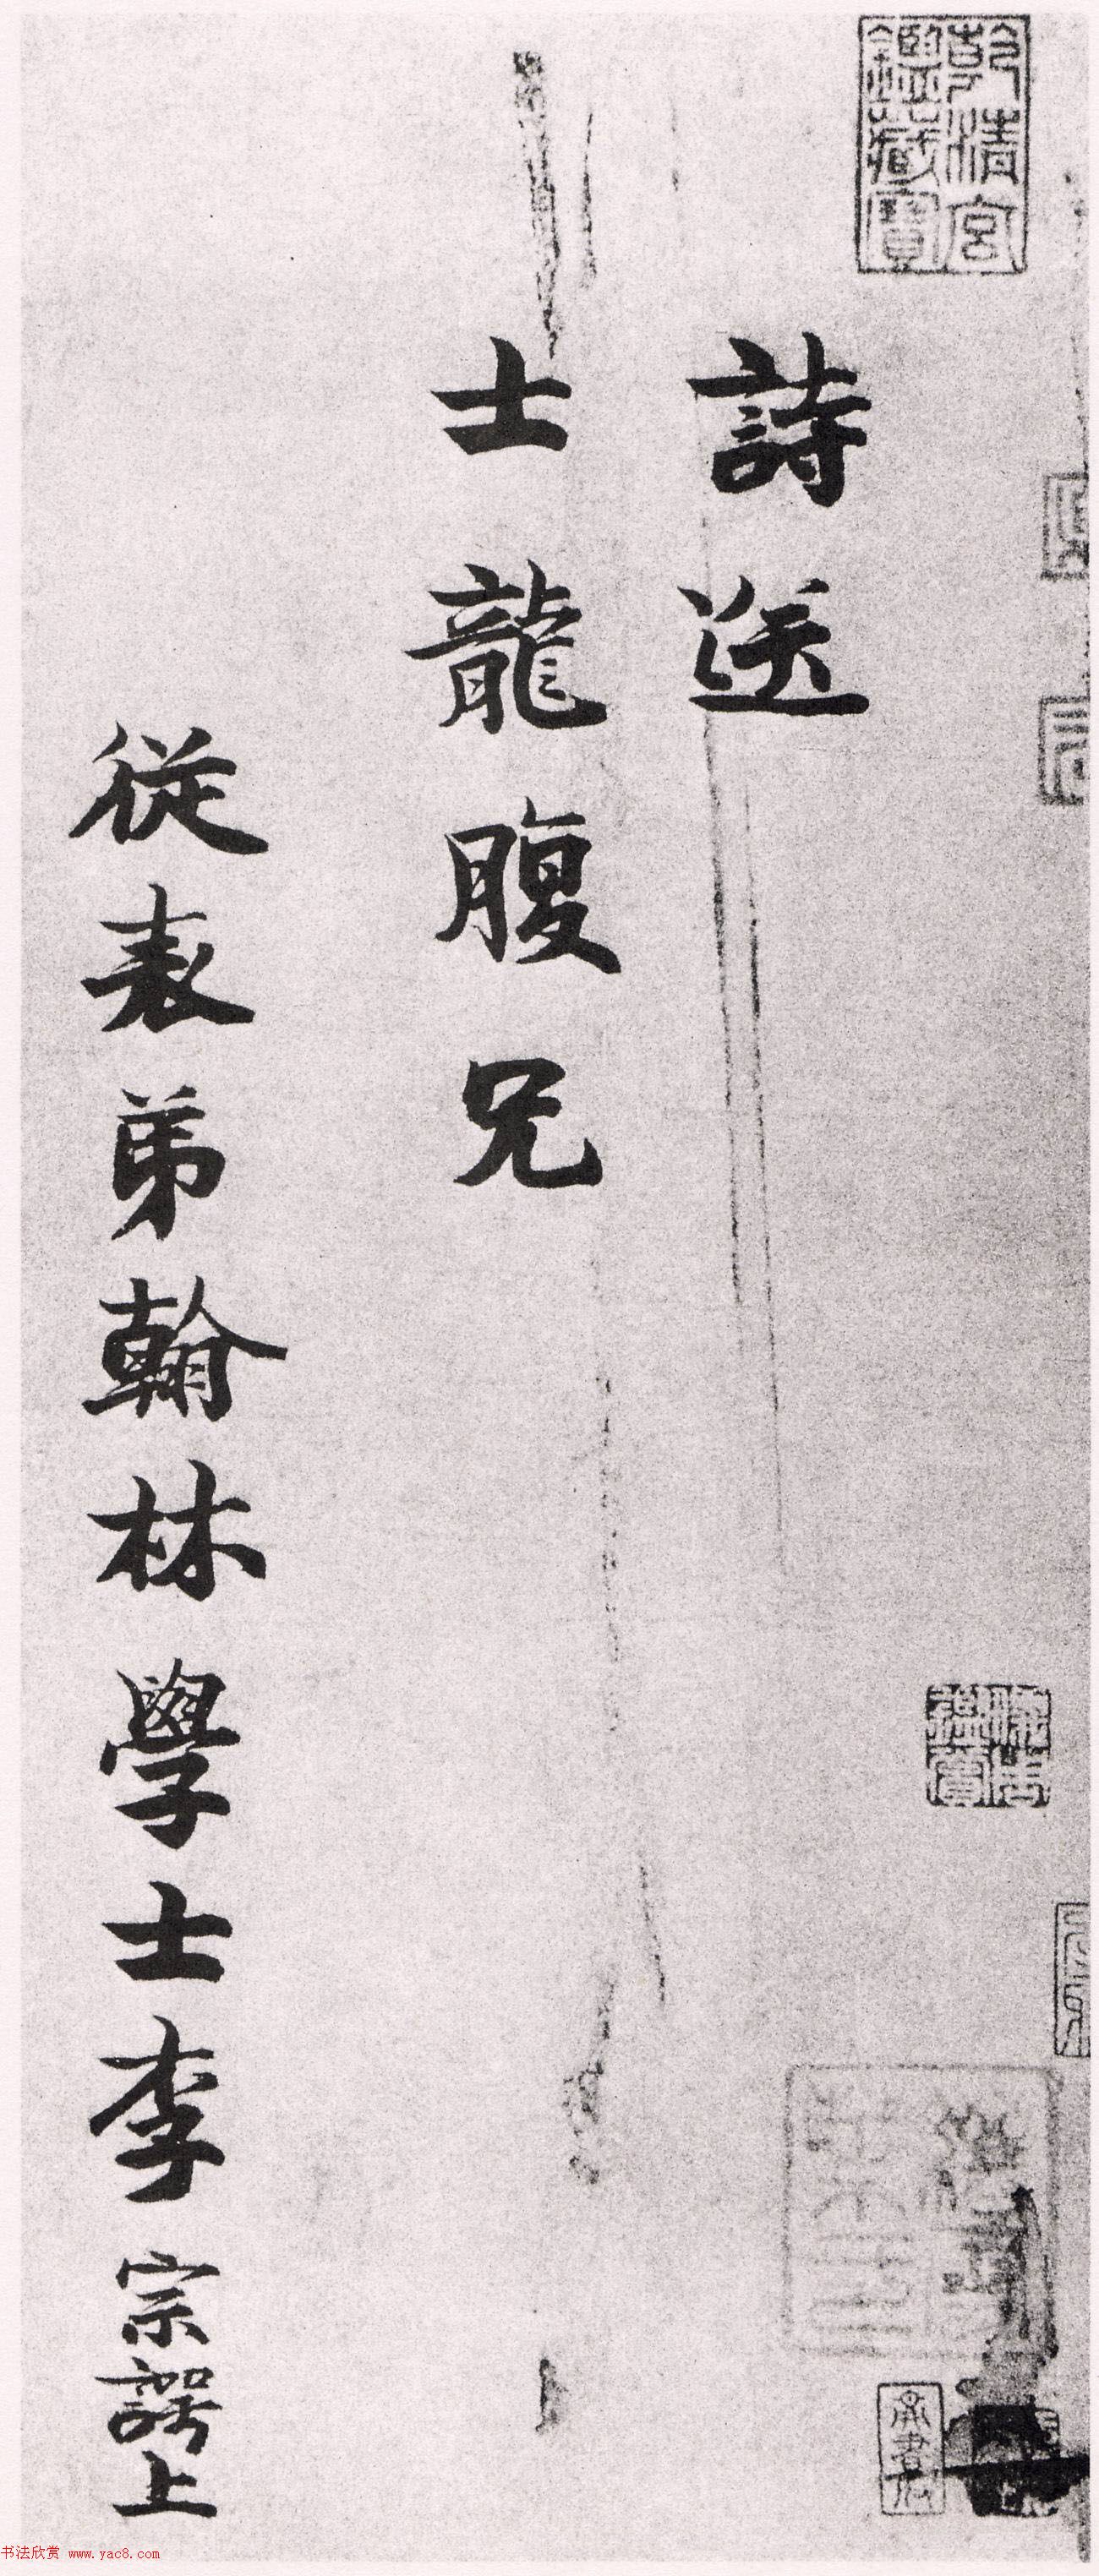 詩送
士龍腹兄
從表弟翰林學士李宗諤上
乾清宮
鑑藏寶
鑑賞
书法欣赏 www.yac8.com